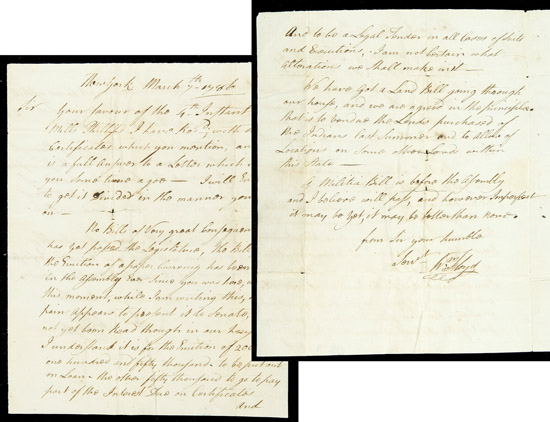 New York March 7th 1786
Sir
Your favour of the 4th Instant
I have Recd with the
Certificates which you mention, an
is a full Answer to a Letter which
you some time ago — I will En
to get it Divided in the manner you
on —
No Bills of Very great Consequence
has yet passed the Legislature, The Bill
the Emition of a paper Currency has been
in the Assembly ever since you was here,
this moment, while I am writing this,
pain appears to present it to Senate,
not yet been Read though in our house
I understand it is for the Emition of 200
one hundred and fifty thousand to be put out
on Loan the other fifty thousand to go to pay
part of the Interest Due on Certificate
and
And to be a Legal Tender in all Cases of Suits
and Executions, I am not Certain what
alterations we Shall make in it —
We have Got a Land Bill going through
our house, and we are agreed in the principle
that is to vend the Lands purchased of
the Indians last Summer and to allow of
Locations on Some other Lands within
this State —
A Militia Bill is before the Assembly
and I believe will pass, and however Imperfect
it may be yet, it may be better than none.
from Sir your humble
Servt Wm Floyd